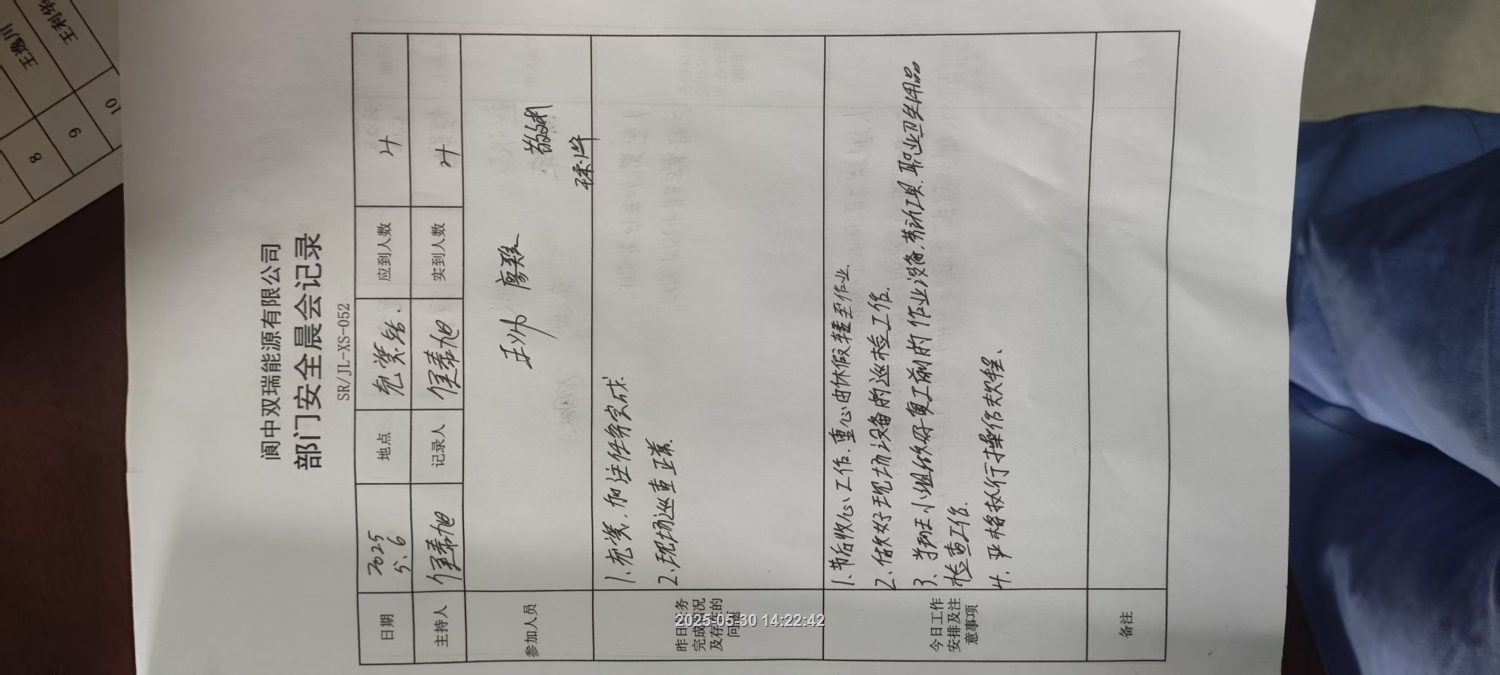 阆中双瑞能源有限公司
部门安全晨会记录
SR/JL-XS-052
日期 2025 5.6 地点 充装站. 应到人数 4
主持人 侯春旭 记录人 侯春旭 实到人数 4
参加人员 廖毅
昨日任务完成情况及存在的问题
1、充装,加注任务完成.
2、现场巡查正常.
今日工作安排及注意事项
1、节后收心工作,重心由休假转至作业.
2、做好现场设备的巡检工作.
3、小组做好复工前的作业设备, 职业卫生用品
检查工作.
4、严格执行操作规程、
备注
王逸川
王利华
8
9
10
2025-05-30 14:22:42